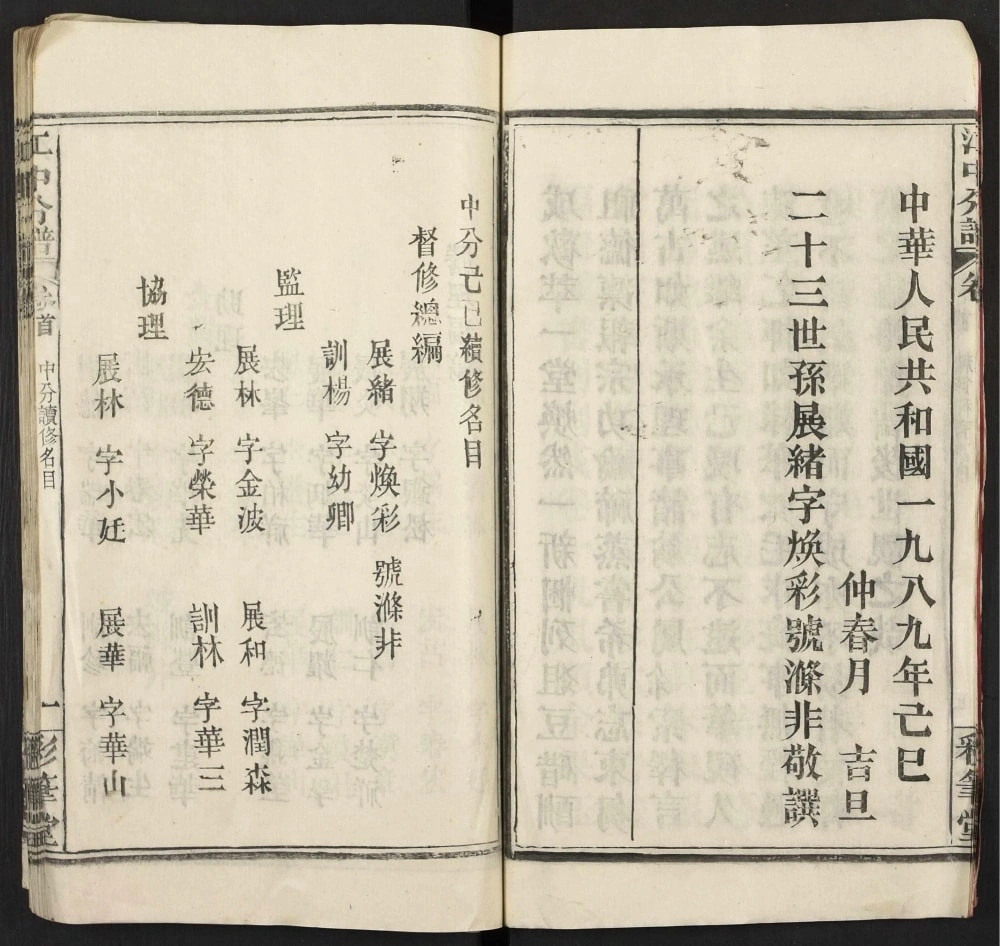 中華人民共和國一九八九年己巳
仲春月 吉旦
二十三世孫展緒字煥彩號滌非敬譔
江中分譜 卷
彩筆堂
中分己巳續修名目
督修總編
展緒 字煥彩 號滌非
訓楊 字幼卿
監理
展林 字金波 展和 字潤森
宏德 字榮華 訓林 字華三
協理
展林 字小廷 展華 字華山
江中分譜 卷首 中分讀修名目 一 彩筆堂